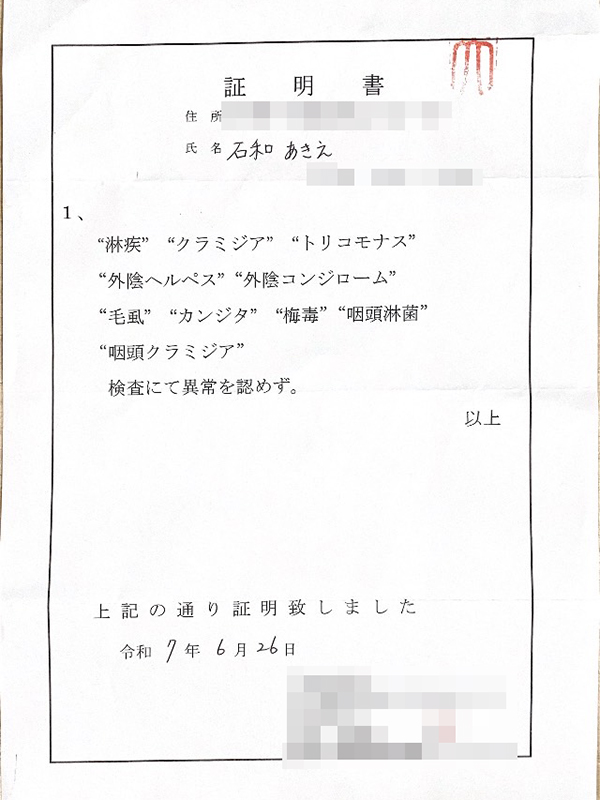 証明書
住所
氏名 石和 あきえ
1、
“淋疾” “クラミジア” “トリコモナス”
“外陰ヘルペス” “外陰コンジローム”
“毛虱” “カンジタ” “梅毒” “咽頭淋菌”
“咽頭クラミジア”
検査にて異常を認めず。
以上
上記の通り証明致しました
令和 7 年 6 月 26 日